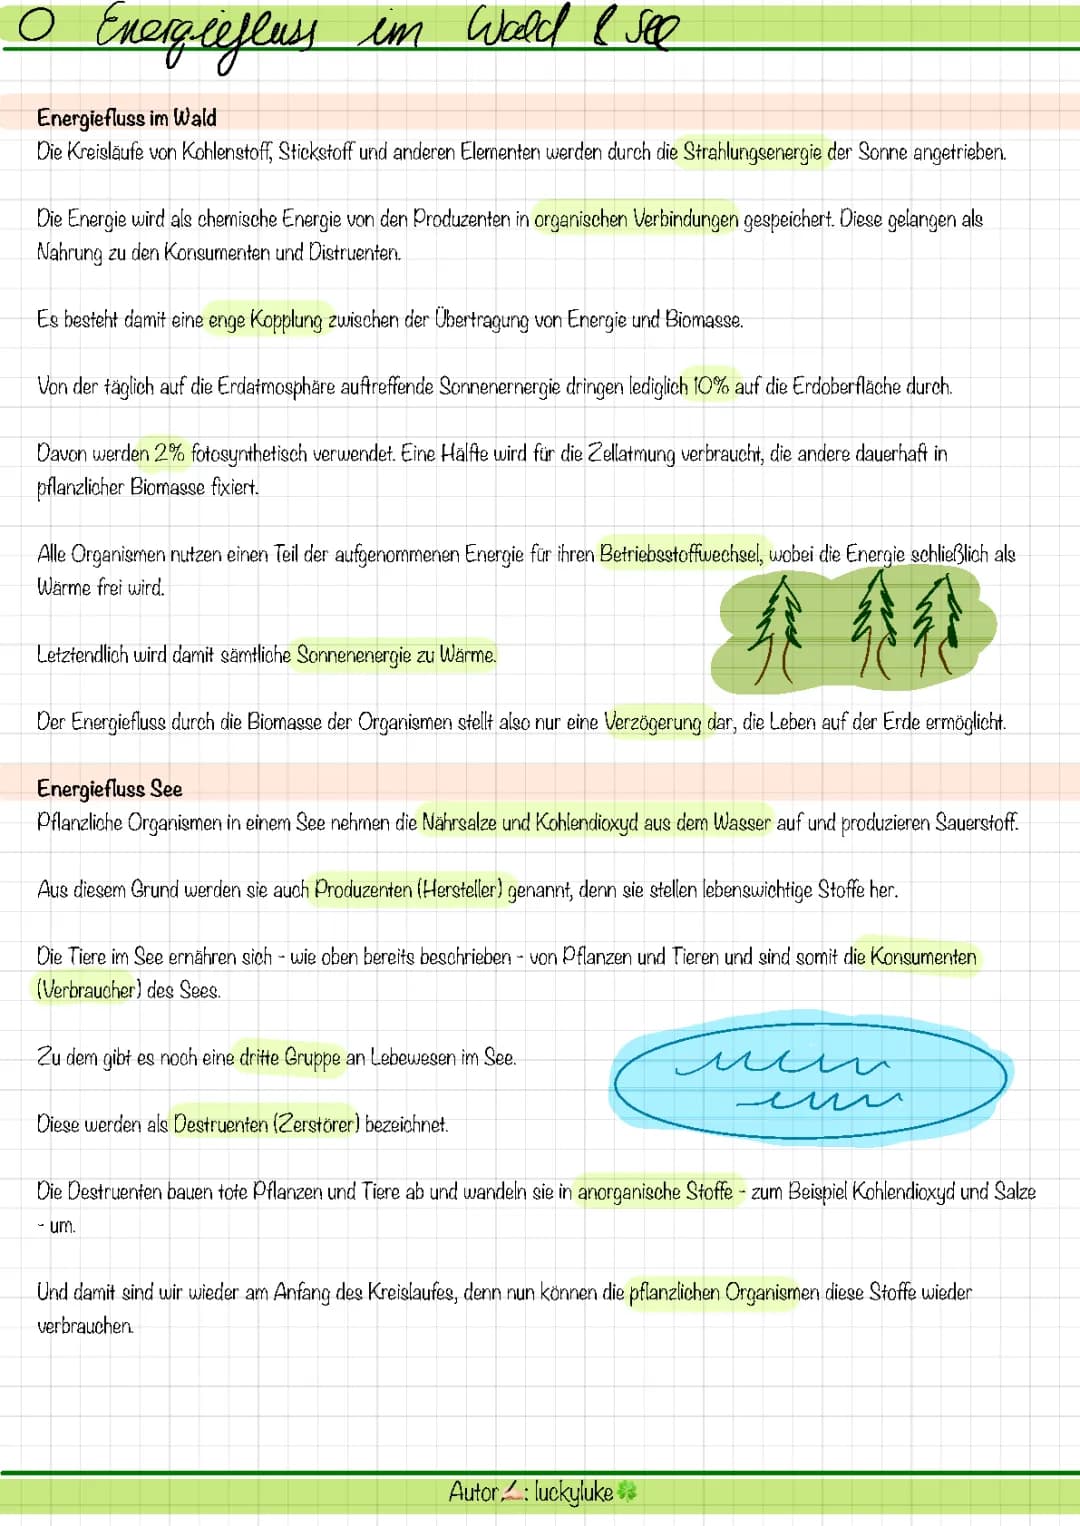 Energiefluss im Wald & See
Energiefluss im Wald
Die Kreisläufe von Kohlenstoff, Stickstoff und anderen Elementen werden durch die Strahlungsenergie der Sonne angetrieben.
Die Energie wird als chemische Energie von den Produzenten in organischen Verbindungen gespeichert. Diese gelangen als
Nahrung zu den Konsumenten und Distruenten.
Es besteht damit eine enge Kopplung zwischen der Übertragung von Energie und Biomasse.
Von der täglich auf die Erdatmosphäre auftreffende Sonnenernergie dringen lediglich 10% auf die Erdoberfläche durch.
Davon werden 2% fotosynthetisch verwendet. Eine Hälfte wird für die Zellatmung verbraucht, die andere dauerhaft in
pflanzlicher Biomasse fixiert.
Alle Organismen nutzen einen Teil der aufgenommenen Energie für ihren Betriebsstoffwechsel, wobei die Energie schließlich als
Wärme frei wird.
Letztendlich wird damit sämtliche Sonnenenergie zu Wärme.
Der Energiefluss durch die Biomasse der Organismen stellt also nur eine Verzögerung dar, die Leben auf der Erde ermöglicht.
Energiefluss See
Pflanzliche Organismen in einem See nehmen die Nährsalze und Kohlendioxyd aus dem Wasser auf und produzieren Sauerstoff.
Aus diesem Grund werden sie auch Produzenten (Hersteller) genannt, denn sie stellen lebenswichtige Stoffe her.
Die Tiere im See ernähren sich - wie oben bereits beschrieben - von Pflanzen und Tieren und sind somit die Konsumenten
(Verbraucher) des Sees.
Zu dem gibt es noch eine dritte Gruppe an Lebewesen im See.
Diese werden als Destruenten (Zerstörer) bezeichnet.
Die Destruenten bauen tote Pflanzen und Tiere ab und wandeln sie in anorganische Stoffe - zum Beispiel Kohlendioxyd und Salze
- um.
Und damit sind wir wieder am Anfang des Kreislaufes, denn nun können die pflanzlichen Organismen diese Stoffe wieder
verbrauchen.
Autor✍🏻: luckyluke🍀